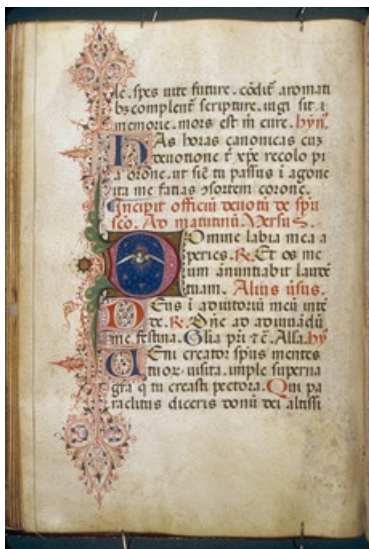 le. spes uite future. cōdit̄ aromati
bꝫ complent̄ scripture. iugi sit i
memorie. mors est m̄ cure. hȳn̄.
Has horas canonicas cuꝫ
deuotione t̄ xp̄e recolo pi
a or̄one. ut sic̄ tu passus i agone
ita me facias ↄsortem corone.
Incipit officiū deuotū de sp̄u
sc̄o. Ad matutinū. Versus.
Domine labia mea a
peries. ℞. Et os me
um anuntiabit laudē
tuam. Alius u̇sus.
Deus ī adiutoriū meū inte
de. ℞. Dn̄e ad adiuuādū
me festina. Gl̄ia pr̄i ⁊c̄. Alla. hȳ
Ueni creator sp̄us mentes
tuor. uisita. imple superna
gr̄a q̄ tu creasti pectora. Qui pa
raclitus diceris donū dei altissi